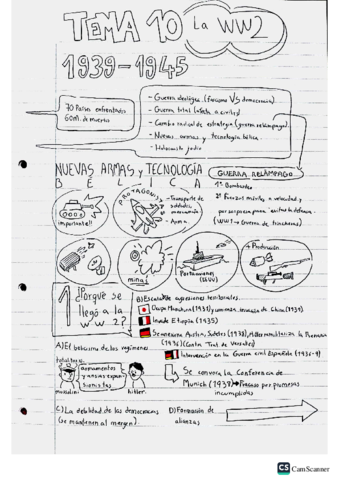 TEMA 10 La WW2
1939-1945
70 Países enfrentados
60M. de muertos
- Guerra ideológica (fascismo VS democracia).
- Guerra total (afecta a civiles)
- Cambio radical de estrategia (guerra relámpago)
- Nuevas armas y tecnología bélica.
- Holocausto judío
NUEVAS ARMAS y TECNOLOGÍA
BÉLICA
GUERRA RELÁMPAGO
1º Bombardeo
2º Fuerzas móviles a velocidad y
por sorpresa para evitar la defensa.
(WW1 → Guerra de trincheras)
importante!!
PROTAGONISTA
- Transporte de
soldados y
mercancía
- Arma
minas
Portaaviones
(EEUU)
+ Producción
1 ¿Porqué se
llegó a la
WW2?
B) Escalada agresiones territoriales.
Ocupa Manchuria (1931) y comienza invasión de China (1937)
Invade Etiopía (1935)
Se anexiona Austria, Sudetes (1938), + Remilitariza la Renania
(1936) (Contra Trat. de Versalles)
Intervención en la Guerra civil Española (1936-9)
A) El belicismo de los regímenes
totalitarios
armamentos
y ansias expan-
sionistas
mussolini
hitler.
Se convoca la Conferencia de
Munich (1938) → Fracaso por promesas
incumplidas
C) La debilidad de las democracias
(se mantienen al margen)
D) Formación de
alianzas
CS CamScanner